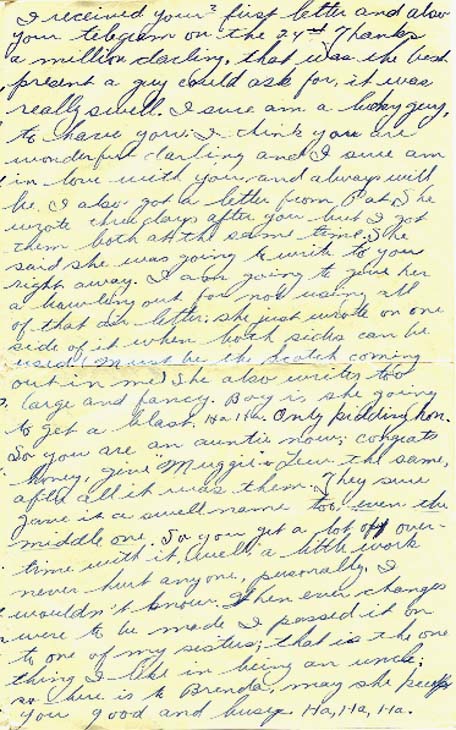 I received your first letter and also
your telegram on the 24th Thanks
a million darling, that was the best
present a guy could ask for, it was
really swell. I sure am a lucky guy,
to have you. I think you are
wonderful darling and I sure am
in love with you, and always will
be. I also got a letter from Pat. She
wrote three days after you but I got
them both at the same time. She
said she was going to write to you
right away. I am going to give her
a bawling out for not using all
of that air letter; she just wrote on one
side of it when both sides can be
used! Must be the scotch coming
out in me! She also writes too
large and fancy. Boy is she going
to get a blast. Ha Ha. Only kidding hon.
So you are an auntie now; congrats
honey, give "Muggie" & Lew the same,
after all it was them. They sure
gave it a swell name too, even the
middle one. So you get a lot of over-
time with it, well a little work
never hurt anyone, personally I
wouldn't know. When ever changes
were to be made I passed it on
to one of my sisters; that is the one
thing I like in being an uncle;
so here is to Brenda, may she keep
you good and busy. Ha, Ha, Ha.